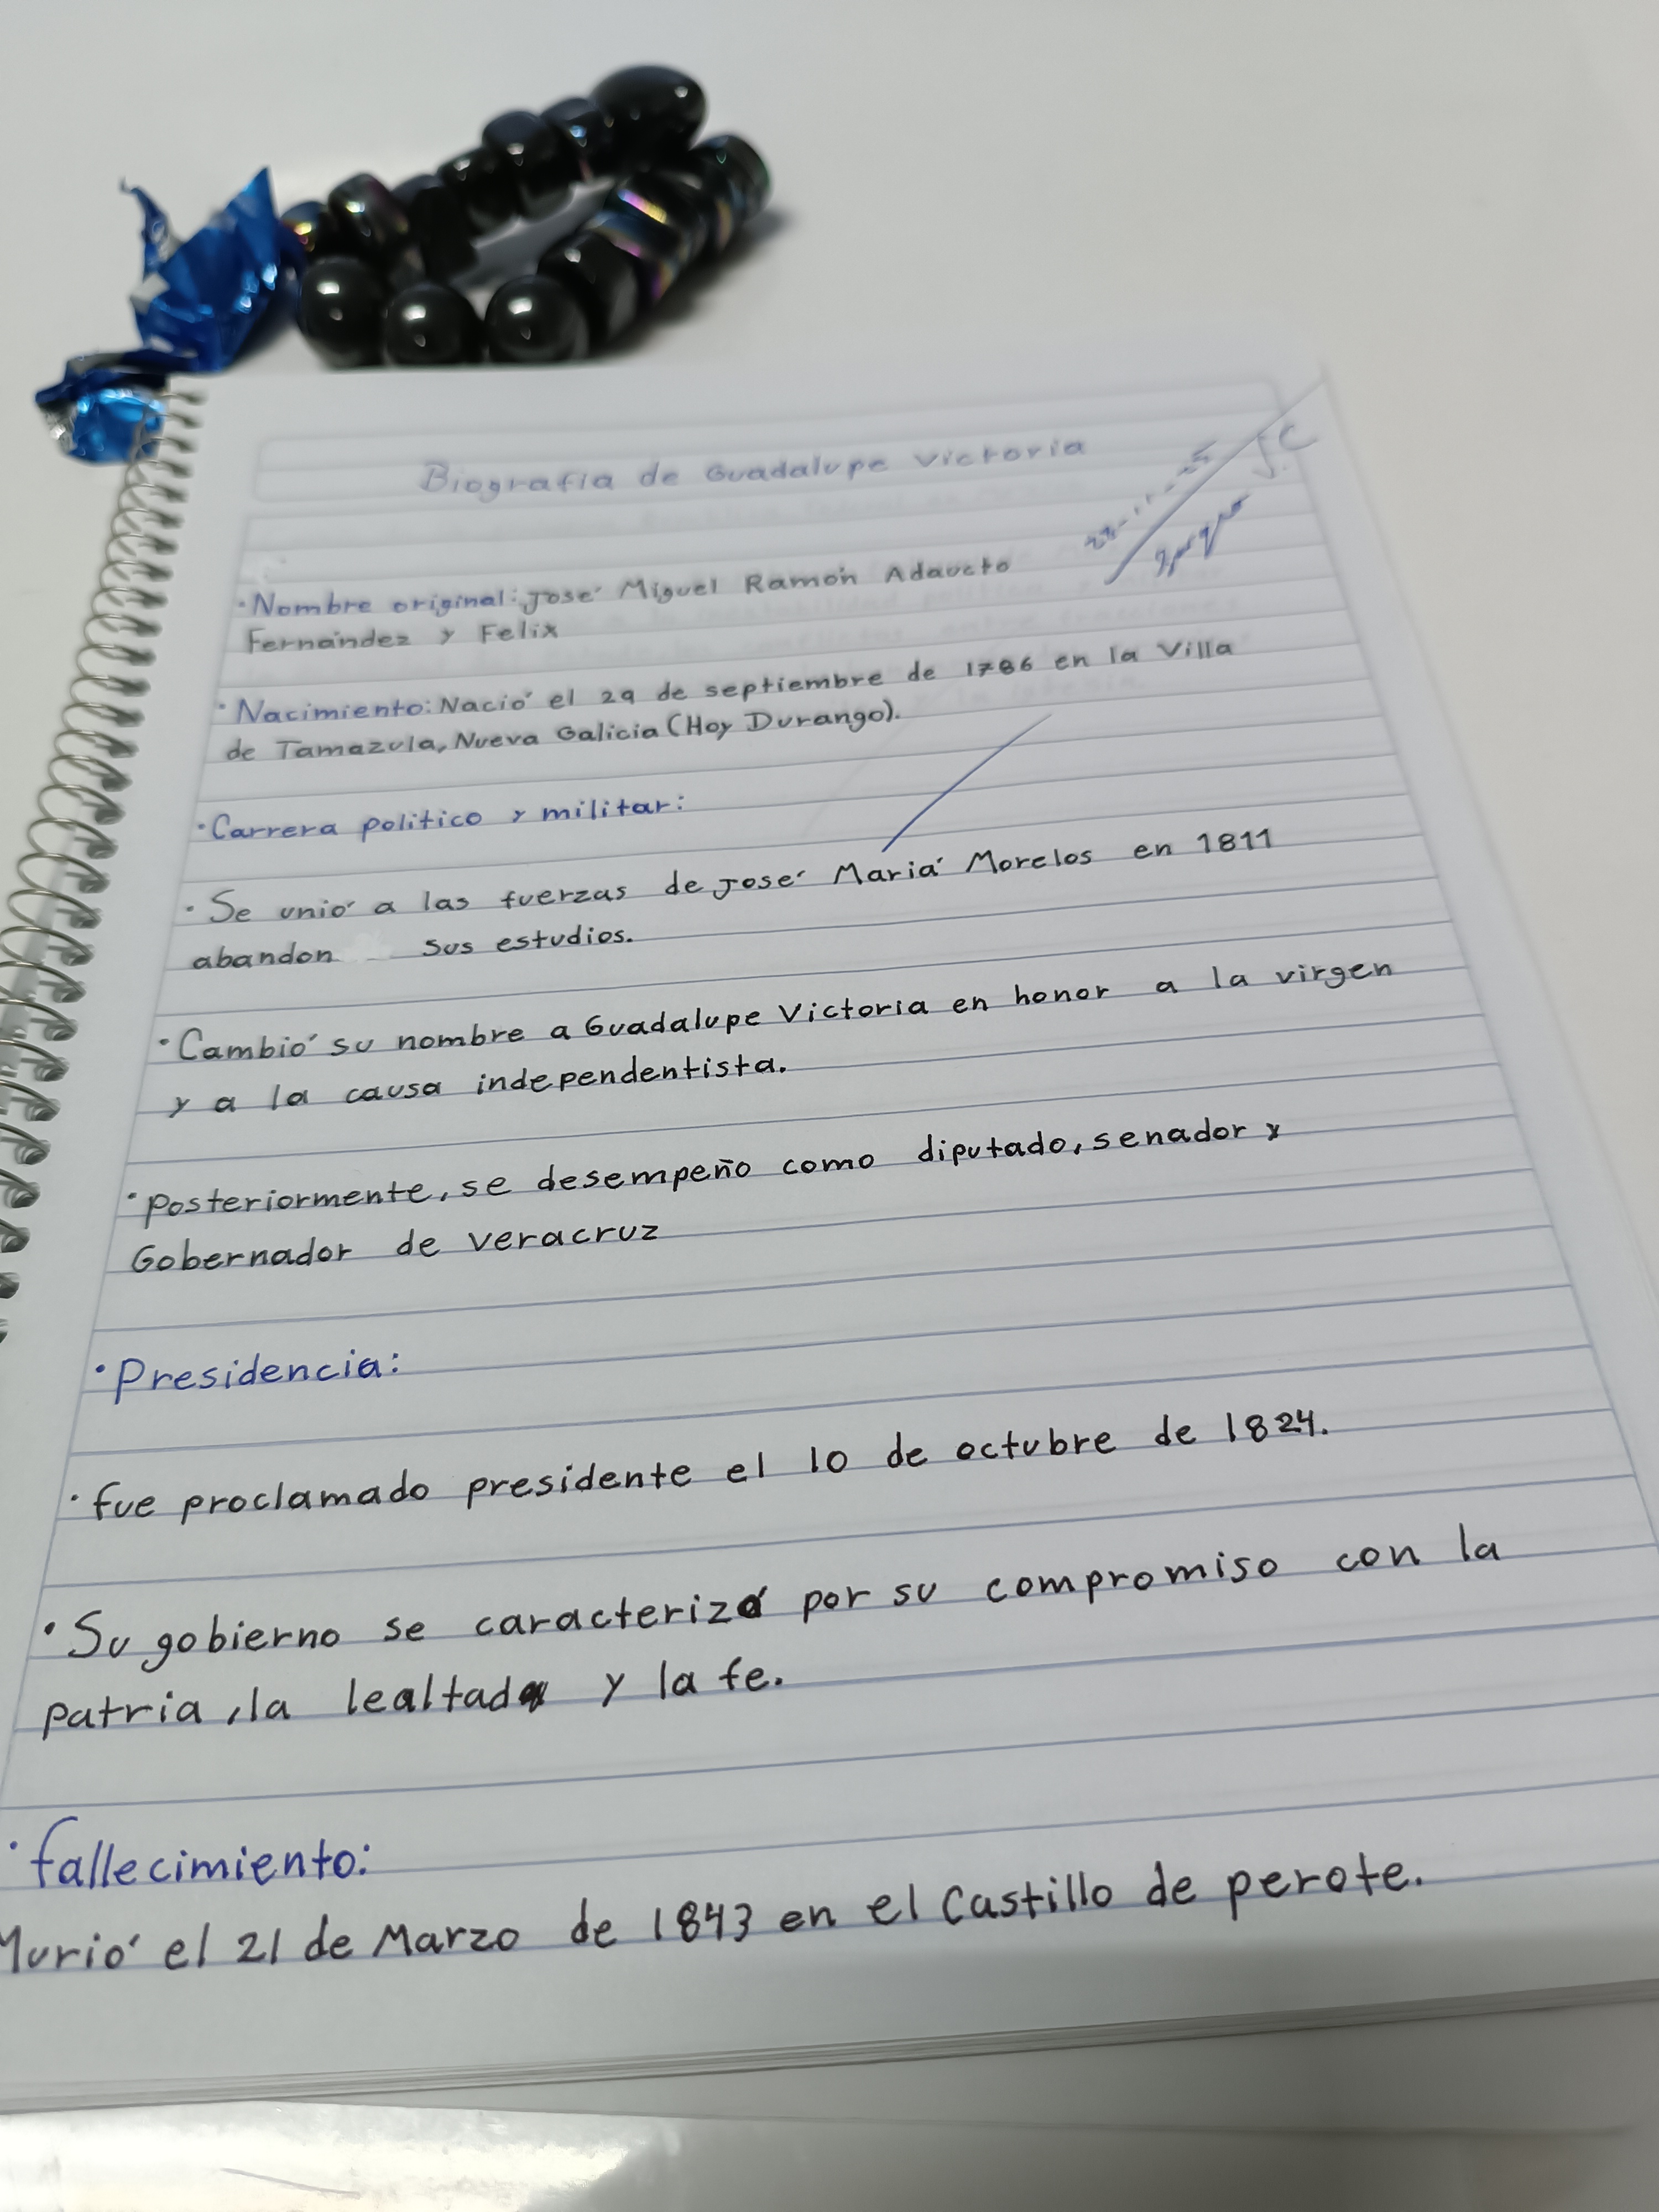 Biografía de Guadalupe Victoria
J.C
• Nombre original: José Miguel Ramón Adaucto
Fernández y Felix
• Nacimiento: Nació el 29 de septiembre de 1786 en la Villa
de Tamazula, Nueva Galicia (Hoy Durango).
• Carrera politico y militar:
• Se unió a las fuerzas de José Mariá Morelos en 1811
abandon sus estudios.
• Cambió su nombre a Guadalupe Victoria en honor a la virgen
y a la causa independentista.
• Posteriormente, se desempeño como diputado, senador y
Gobernador de Veracruz
• Presidencia:
• fue proclamado presidente el 10 de octubre de 1824.
• Su gobierno se caracterizó por su compromiso con la
patria, la lealtad y la fe.
• fallecimiento:
Murió el 21 de Marzo de 1843 en el Castillo de perote.